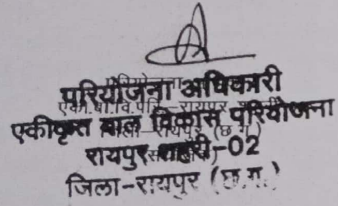 परियोजना अधिकारी
एकीकृत बाल विकास परियोजना
रायपुर शहरी-02
जिला-रायपुर (छ.ग.)